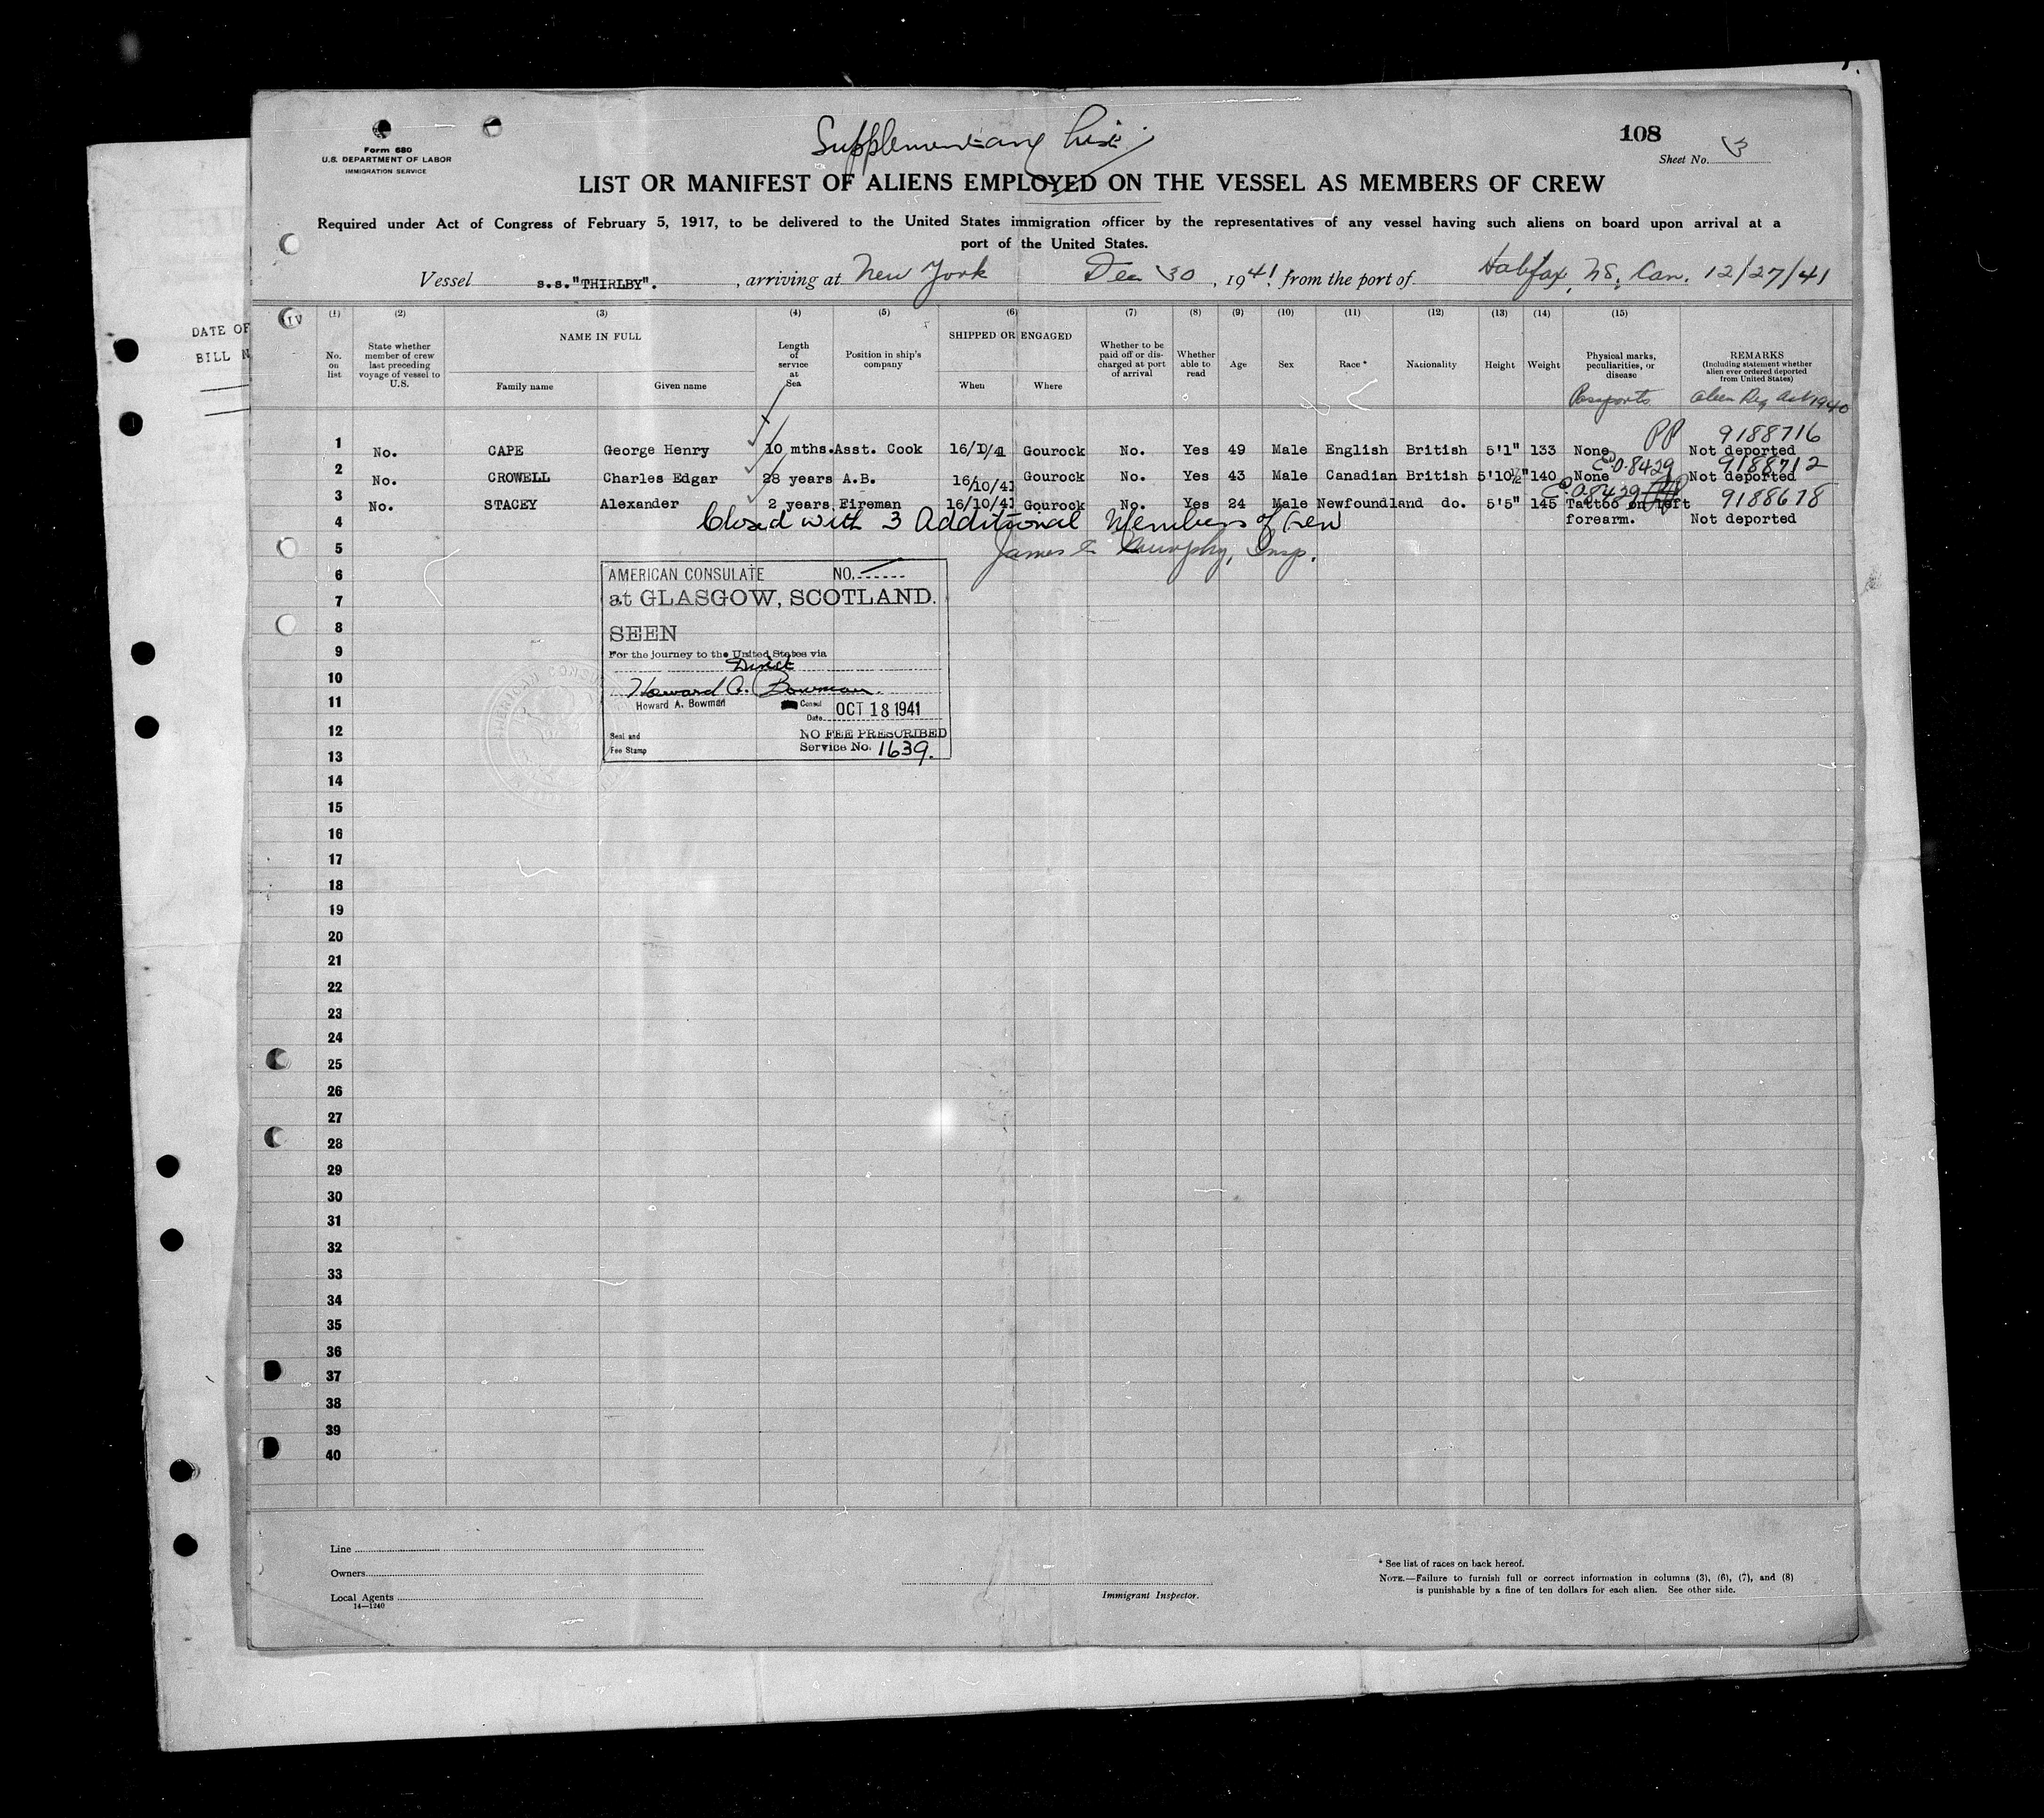 Supplementary List
108
Form 680
U.S. DEPARTMENT OF LABOR
IMMIGRATION SERVICE
Sheet No. 3
LIST OR MANIFEST OF ALIENS EMPLOYED ON THE VESSEL AS MEMBERS OF CREW
Required under Act of Congress of February 5, 1917, to be delivered to the United States immigration officer by the representatives of any vessel having such aliens on board upon arrival at a
port of the United States.
Vessel s.s."THIRLBY". , arriving at New York Dec 30 , 1941 from the port of Halifax, NS, Can. 12/27/41
DATE OF
BILL N
IV
(1) (2) (3) (4) (5) (6) (7) (8) (9) (10) (11) (12) (13) (14) (15)
No. on list
State whether member of crew last preceding voyage of vessel to U.S.
NAME IN FULL
Family name
Given name
Length of service at Sea
Position in ship's company
SHIPPED OR ENGAGED
When
Where
Whether to be paid off or discharged at port of arrival
Whether able to read
Age
Sex
Race *
Nationality
Height
Weight
Physical marks, peculiarities, or disease
REMARKS
(Including statement whether alien ever ordered deported from United States)
Passports
Alien Reg Act 1940
PP 9188716
1 No. CAPE George Henry 10 mths. Asst. Cook 16/10/41 Gourock No. Yes 49 Male English British 5'1" 133 None Not deported
E.O. 8429 9188712
2 No. CROWELL Charles Edgar 28 years A.B. 16/10/41 Gourock No. Yes 43 Male Canadian British 5'10½" 140 None Not deported
E.O. 8429 PP 9188678
3 No. STACEY Alexander 2 years Fireman 16/10/41 Gourock No. Yes 24 Male Newfoundland do. 5'5" 145 Tattoo on left
forearm. Not deported
4 Closed with 3 Additional Members of Crew
5 James E. Murphy, Insp.
6
7
8
9
10
11
12
13
14
15
16
17
18
19
20
21
22
23
24
25
26
27
28
29
30
31
32
33
34
35
36
37
38
39
40
AMERICAN CONSULATE NO.
at GLASGOW, SCOTLAND.
SEEN
For the journey to the United States via
Direct
Howard A. Bowman.
Howard A. Bowman Consul
Date OCT 18 1941
Seal and
Fee Stamp
NO FEE PRESCRIBED
Service No. 1639.
Line
Owners
Local Agents
14—1240
Immigrant Inspector.
* See list of races on back hereof.
NOTE.—Failure to furnish full or correct information in columns (3), (6), (7), and (8)
is punishable by a fine of ten dollars for each alien. See other side.